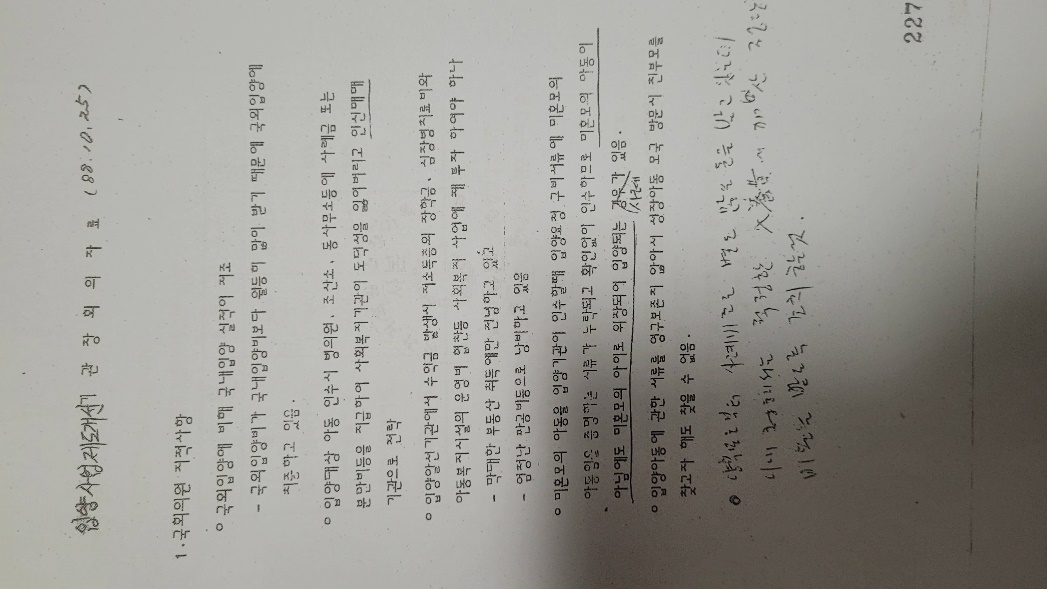 입양사업제도개선 관 장 회 의 자 료 (88.10.25)
1. 국회의원 지적사항
o 국외입양에 비해 국내입양 실적이 저조
- 국외입양비가 국내입양비보다 월등히 많이 받기 때문에 국외입양에
치중하고 있음.
o 입양대상 아동 인수시 병의원, 조산소, 동사무소등에 사례금 또는
분만비등을 지급하여 사회복지기관이 도덕성을 잃어버리고 인신매매
기관으로 전락
o 입양알선기관에서 수익금 발생시 저소득층의 장학금, 심장병치료비와
아동복지시설의 운영비 협찬등 사회복지 사업에 재 투자 하여야 하나
- 막대한 부동산 취득에만 전념하고 있고
- 엄청난 판공비등으로 낭비하고 있음
o 미혼모의 아동을 입양기관이 인수할때 입양요청 구비서류에 미혼모의
아동임을 증명하는 서류가 누락되고 확인없이 인수하므로 미혼모의 아동이
아님에도 미혼모의 아이로 위장되어 입양되는 경우가 있음.
(사문에)
o 입양아동에 관한 서류를 영구보존치 않아서 성장아동 모국 방문시 친부모를
찾고자 해도 찾을 수 없음.
o 사례비로 받은 돈을
비판
227